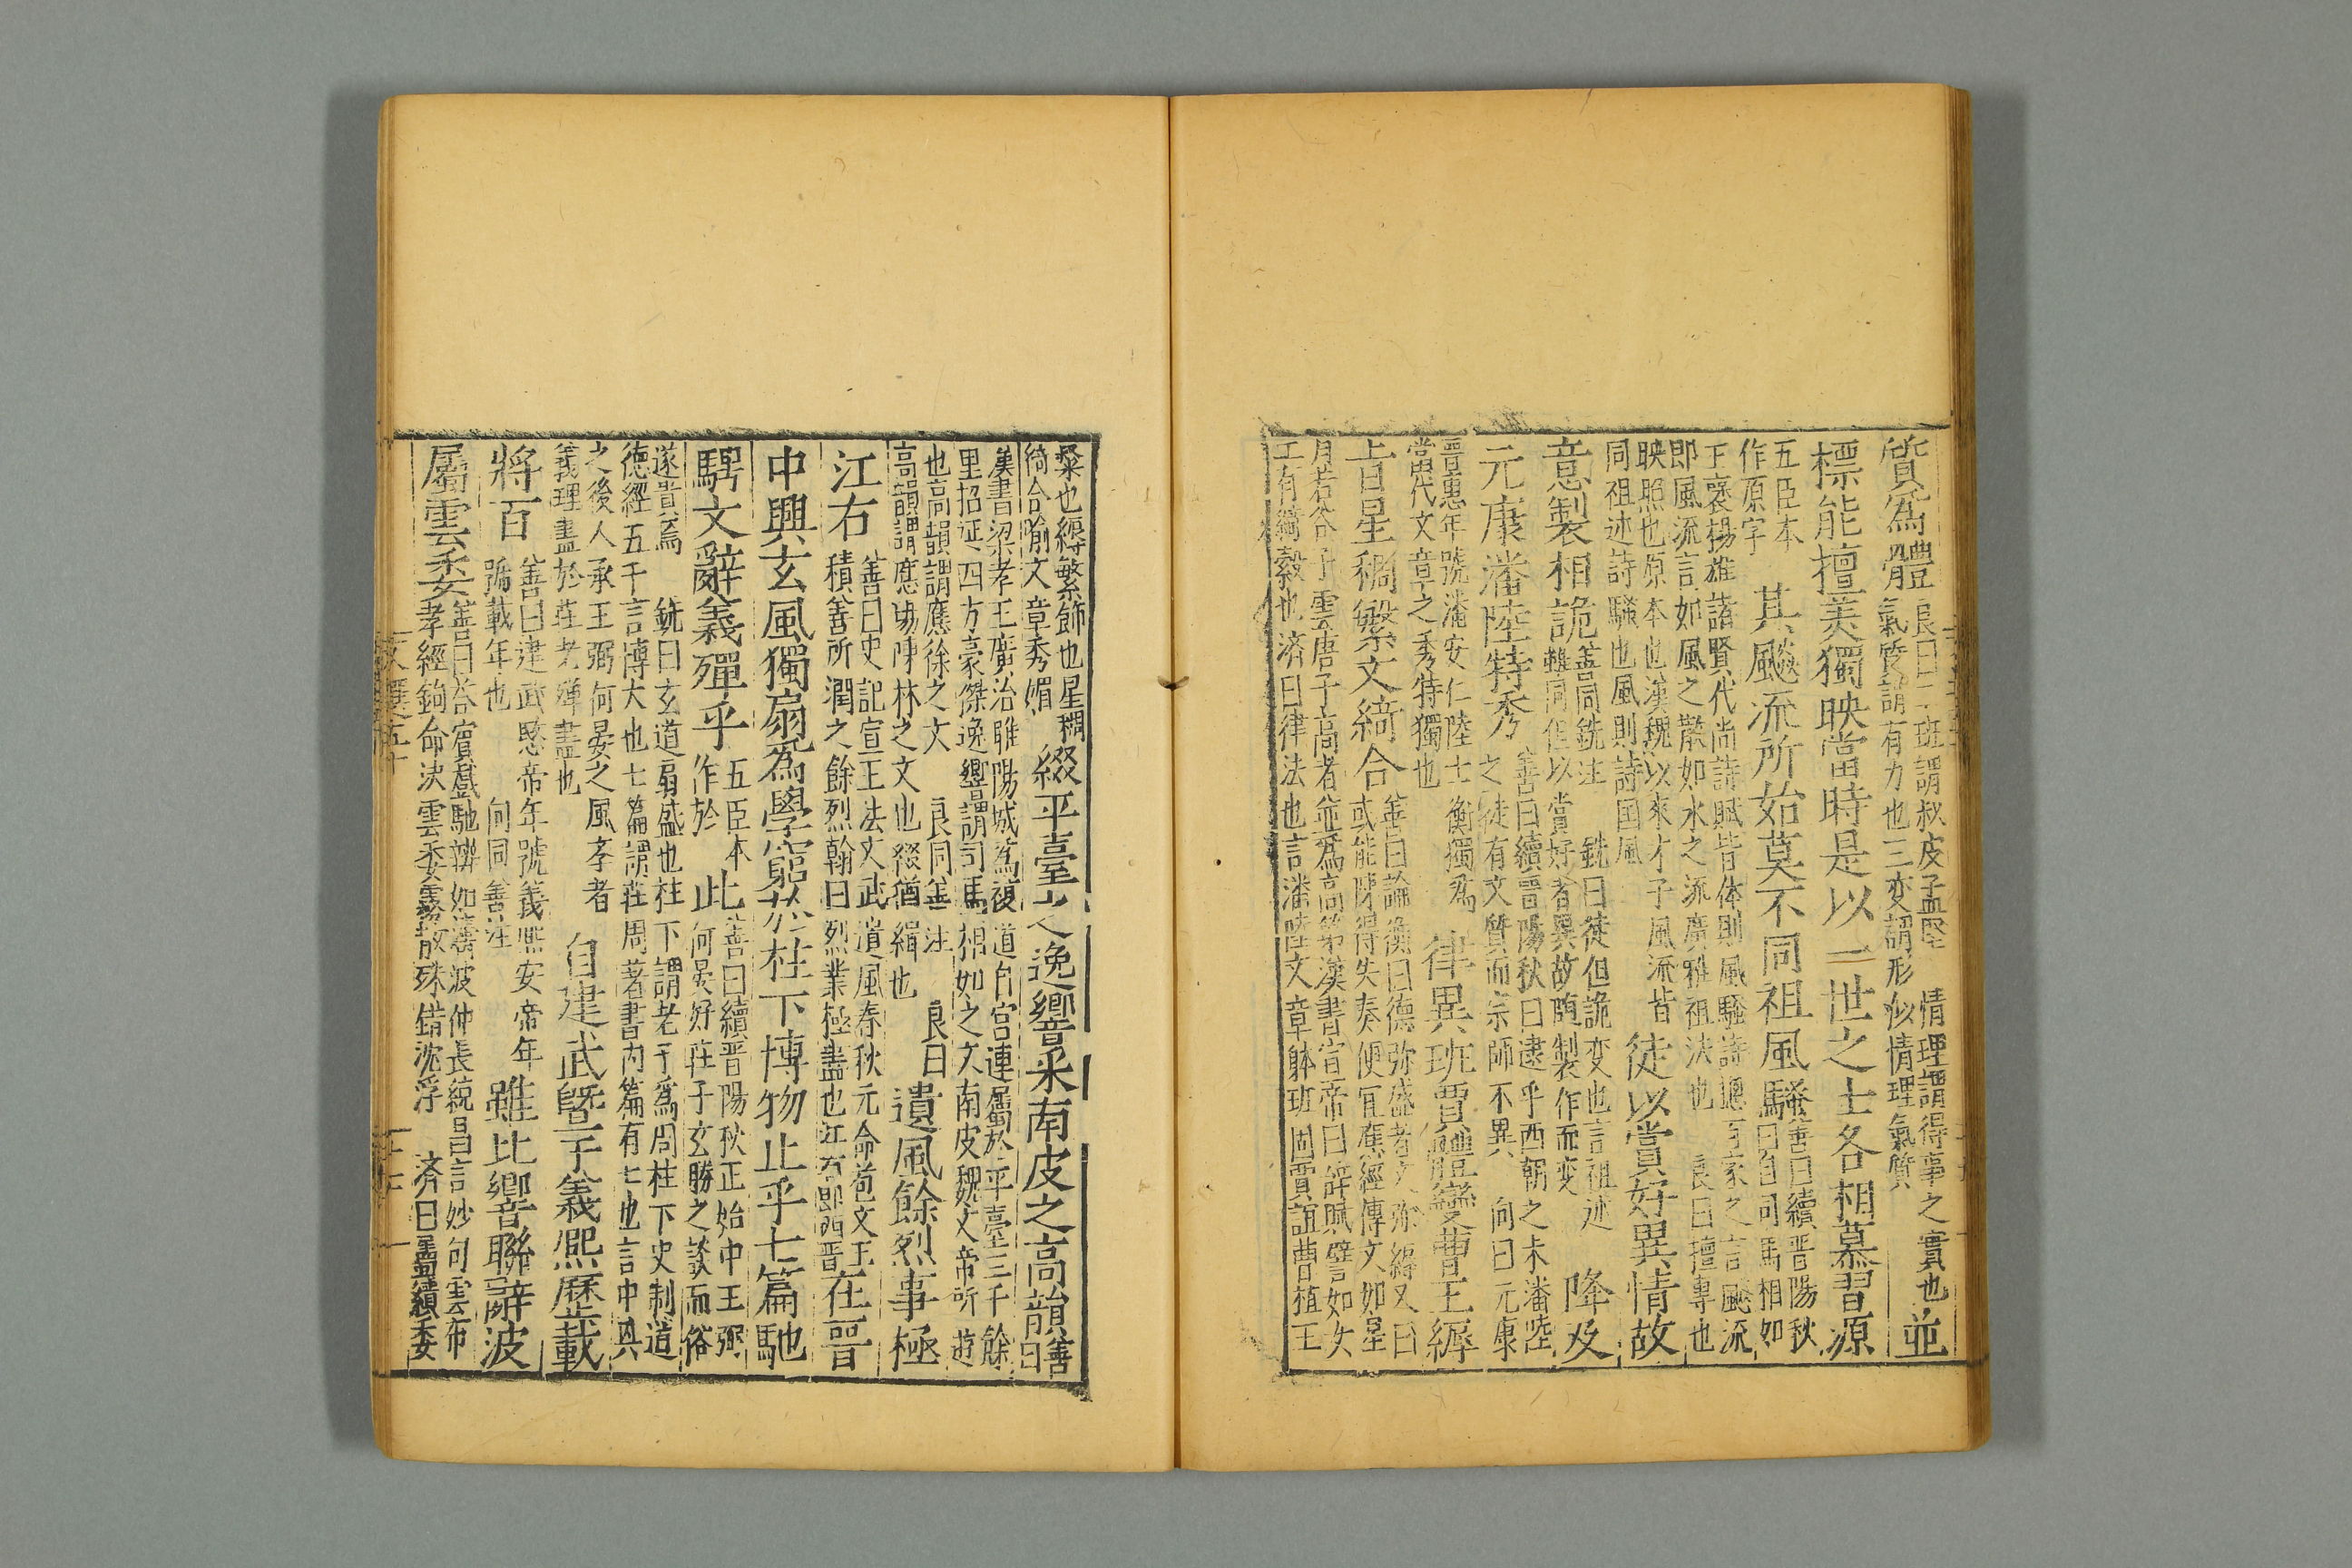 質爲體良曰二班謂叔皮孟堅 情理謂得事之實也
氣質謂有力也三变謂形似情理氣質 並
標能擅美獨映當時是以一世之士各相慕習源
五臣本
作原字 其飇流所始莫不同祖風騷善曰續晋陽秋曰自司馬相如
王褒楊雄諸賢代尚詩賦皆体則風騷詩緫百家之言飇流
即風流言如風之散如水之流廣雅祖法也 良曰擅專也
映照也原本也漢魏以來才子風流皆
同祖述詩騷也風則詩国風 徒以賞好異情故
意製相詭善同銑注 銑曰徒但詭变也言祖述
雖同但以賞好者異故随製作而变 降及
元康潘陸特秀善曰續晋陽秋曰逮乎西朝之末潘陸
之徒有文質而宗師不異 向曰元康
晋惠年號潘安仁陸士衡獨爲
當代文章之秀特獨也 律異班賈體變曹王縟
旨星稠繁文綺合善曰論衡曰德弥盛者文弥縟又曰
或能陳得失奏便宜應經傳文如星
月若谷子雲唐子高者並爲高第漢書宣帝曰辭賦譬如女
工有綺縠也 济曰律法也言潘陸文章躰班固賈誼曹植王
粲也縟繁飾也星稠
綺合喻文章秀媚 綴平臺之逸響采南皮之高韻善曰
漢書梁孝王廣治睢陽城爲複道自宮連屬於平臺三十餘
里招延四方豪傑逸響謂司馬相如之文南皮魏文帝所遊
也高韻謂應徐之文 良同善注 良曰
高韻謂應瑒陳林之文也綴猶緝也 遺風餘烈事極
江右善曰史記宣王法文武遺風春秋元命苞文王
積善所潤之餘烈翰曰烈業極盡也江右即西晋 在晋
中興玄風獨扇爲學窮於柱下博物止乎七篇馳
騁文辭義殫乎五臣本
作於 此善曰續晋陽秋正始中王弼
何晏好莊子玄勝之談而俗
遂貴焉 銑曰玄道扇盛也柱下謂老子爲周柱下史制道
德經五千言博大也七篇謂莊周著書内篇有七也言中興
之後人承王弼何晏之風李者
義理盡於莊老殫盡也 自建武曁于義熙歷載
將百善曰建武愍帝年號義熙安帝年
號載年也 向同善注 雖比響聯辭波
屬雲委善曰荅賓戲馳辨如濤波仲長統昌言妙句雲布
孝經鉤命決雲委霧散殊錯沈浮 济曰屬續委